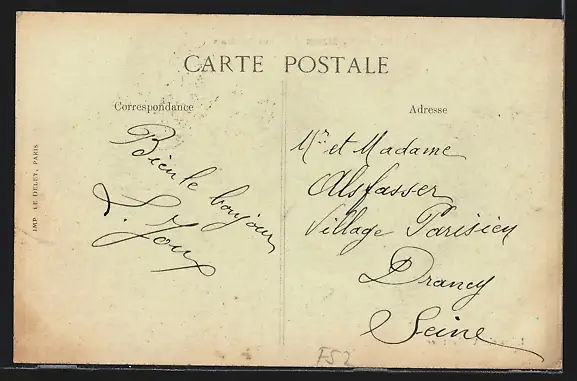 CARTE POSTALE
Correspondance
Bien le bonjour
L. Joux
Adresse
Mr et Madame
Alsfasser
Village Parisien
Drancy
Seine
IMP. LE DELEY, PARIS
F52